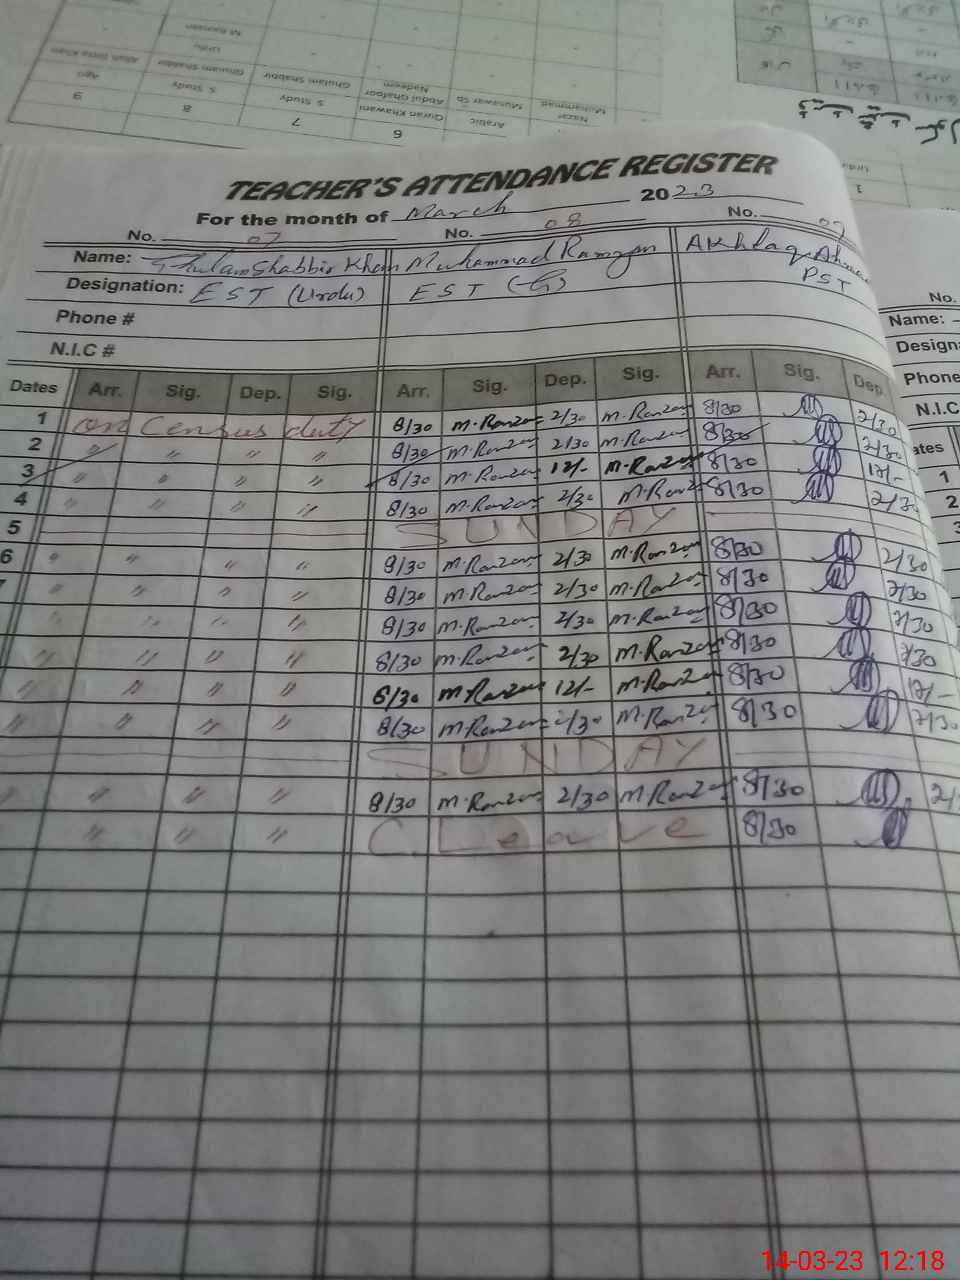 9 8 7 6
Ago S. Study S. Study Quran Khawani Arabic Nazar
Allah Ditta Khan Ghulam Shabbir Ghulam Shabbir Abdul Ghafoor Nadeem Munawar Sb Muhammad
Urdu
TEACHER'S ATTENDANCE REGISTER
For the month of March 2023
No. 07 No. 08 No. 09
Name: Ghulam Shabbir Khan Muhammad Ramzan Akhlaq Ahmad
Designation: EST (Urdu) EST PST
Phone #
N.I.C #
Dates Arr. Sig. Dep. Sig. Arr. Sig. Dep. Sig. Arr. Sig. Dep.
1 on Census duty 8/30 M.Ramzan 2/30 M.Ramzan 8/30 2/30
2 " " " " 8/30 M.Ramzan 2/30 M.Ramzan 8/30 2/30
3 " " " " 8/30 M.Ramzan 12/- M.Ramzan 8/30 12/-
4 " " " " 8/30 M.Ramzan 2/30 M.Ramzan 8/30 2/30
5 SUNDAY
6 " " " " 8/30 M.Ramzan 2/30 M.Ramzan 8/30 2/30
" " " " 8/30 M.Ramzan 2/30 M.Ramzan 8/30 2/30
" " " " 8/30 M.Ramzan 2/30 M.Ramzan 8/30 2/30
" " " " 8/30 M.Ramzan 2/30 M.Ramzan 8/30 2/30
" " " " 8/30 M.Ramzan 12/- M.Ramzan 8/30 12/-
" " " " 8/30 M.Ramzan 2/30 M.Ramzan 8/30 2/30
SUNDAY
" " " " 8/30 M.Ramzan 2/30 M.Ramzan 8/30 2/
" " " C. Leave 8/30
No.
Name:
Design
Phone
N.I.C
ates
1
2
3
14-03-23 12:18